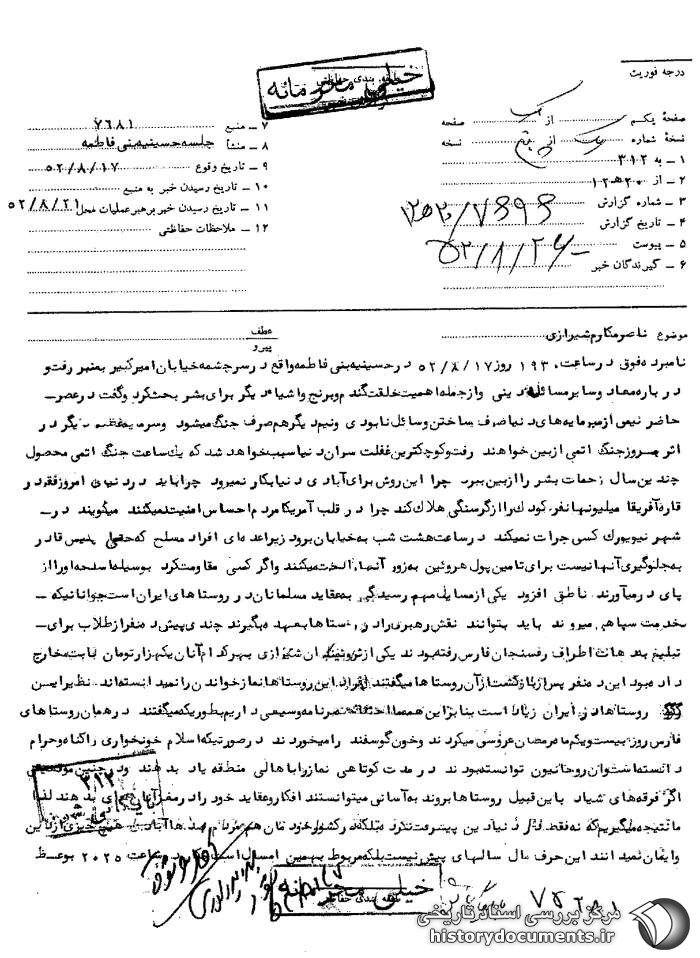 خیلی محرمانه
درجه فوریت
صفحهٔ یکم از صفحه
نسخهٔ شماره از نسخه
۱ – به ۳۱۲
۲ – از ۲۰ هـ ۱۲
۳ – شماره گزارش
۴ – تاریخ گزارش
۵ – پیوست
۶ – گیرندگان خبر
۷ – منبع ۷۶۸۱
۸ – منشأ جلسه حسینیه بنی فاطمه
۹ – تاریخ وقوع ۵۲/۸/۱۷
۱۰ – تاریخ رسیدن خبر به منبع
۱۱ – تاریخ رسیدن خبر برهبر عملیات محل ۵۲/۸/۲۱
۱۲ – ملاحظات حفاظتی
موضوع ناصر مکارم شیرازی
عطف
پیرو
نامبرده فوق در ساعت ۱۹۳۰ روز ۵۲/۸/۱۷ در حسینیه بنی فاطمه واقع در سرچشمه خیابان امیرکبیر بمنبر رفت و
درباره معاد و سایر مسائل دینی و از جمله اهمیت خلقت گندم و برنج و اشیا دیگر برای بشر بحث کرد و گفت در عصر –
حاضر نیمی از سرمایه های دنیا صرف ساختن وسائل نابودی و نیم دیگر هم صرف جنگ میشود و سرمایه دیگر در
اثر بروز جنگ اتمی از بین خواهند رفت و کوچکترین غفلت سران دنیا سبب خواهد شد که یک ساعت جنگ اتمی محصول
چندین سال زحمات بشر را از بین ببرد چرا این روش برای آبادی دنیا بکار نمیرود چرا باید در دنیای امروز فقر در
قاره آفریقا میلیونها نفر کودک را از گرسنگی هلاک کند چرا در قلب آمریکا مردم احساس امنیت نمیکنند میگویند در –
شهر نیویورک کسی جرات نمیکند در ساعت هشت شب به خیابان برود زیرا عده ای افراد مسلح که حتی پلیس قادر
به جلوگیری آنها نیست برای تامین پول هروئین به زور آنها را لخت میکنند و اگر کسی مقاومت کرد بوسیله اسلحه او را از
پای در میآورند ناطق افزود یکی از مسایل مهم رسیدگی به عقاید مسلمانان در روستاهای ایران است جوانانیکه –
بخدمت سپاهی میروند باید بتوانند نقش رهبری را در روستاها بعهده بگیرند چندی پیش ده نفر از طلاب برای –
تبلیغ به دهات اطراف رفسنجان فارس رفته بودند یکی از ثروتمندان شیرازی بهر کدام آنان یکهزار تومان بابت مخارج
داده بود این ده نفر پس از بازگشت از آن روستاها میگفتند افراد این روستاها نماز خواندن را نمیدانسته اند نظیر این
روستاها در ایران زیاد است بنابر این همه احتیاج به برنامه وسیعی داریم بطوریکه میگفتند در همان روستاهای
فارس روز بیست و یکم ماه رمضان عروسی میکردند و خون گوسفند را میخوردند در صورتیکه اسلام خونخواری را گناه و حرام
دانسته است و آن روحانیون توانسته بودند در مدت کوتاهی نماز را باهالی منطقه یاد بدهند و در چنین موقعیتی
اگر فرقه های شیاد باین قبیل روستاها بروند به آسانی میتوانستند افکار و عقاید خود را در مغز آنها جای بدهند لذا
ما نتیجه میگیریم که نه فقط در دنیا دین پیشرفت نکرده بلکه در کشور خودمان هم مردم
و ایمان نمیدانند این حرف مال سالهای پیش نیست بلکه مربوط بهمین امسال است ساعت ۲۰۲۵ بوعظ
۳۱۲
خیلی محرمانه
طبقه بندی حفاظتی
مرکز بررسی اسناد تاریخی
historydocuments.ir